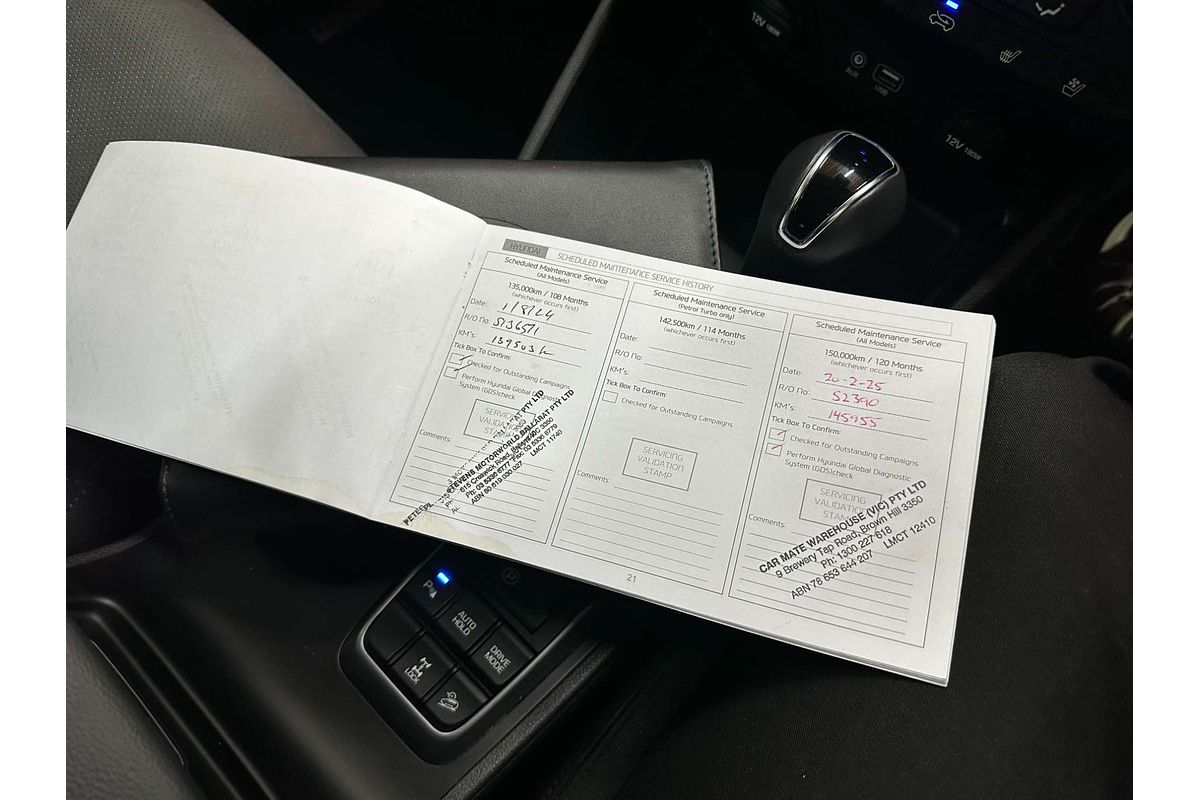 12V 180W
AUX
USB
12V 180W
HYUNDAI SCHEDULED MAINTENANCE SERVICE HISTORY
Scheduled Maintenance Service
(All Models)
135,000km / 108 Months
(whichever occurs first)
Date: 1/8/24
R/O No:
KM's:
Tick Box To Confirm:
Checked for Outstanding Campaigns
Perform Hyundai Global Diagnostic
System (GDS)check
SERVICING
VALIDATION
STAMP
Comments:
STEVENS MOTORWORLD BALLARAT PTY LTD
615 Creswick Road, Ballarat VIC 3350
ABN 80 619 030 027 LMCT 11740
Scheduled Maintenance Service
(Petrol Turbo only)
142,500km / 114 Months
(whichever occurs first)
Date:
R/O No:
KM's:
Tick Box To Confirm:
Checked for Outstanding Campaigns
SERVICING
VALIDATION
STAMP
Comments:
21
Scheduled Maintenance Service
(All Models)
150,000km / 120 Months
(whichever occurs first)
Date: 20-2-25
R/O No: 52390
KM's: 145955
Tick Box To Confirm:
Checked for Outstanding Campaigns
Perform Hyundai Global Diagnostic
System (GDS)check
SERVICING
VALIDATION
STAMP
Comments:
CAR MATE WAREHOUSE (VIC) PTY LTD
9 Brewery Tap Road, Brown Hill 3350
Ph: 1300 227 618
ABN 76 653 644 207 LMCT 12410
P
AUTO
HOLD
DRIVE
MODE
LOCK